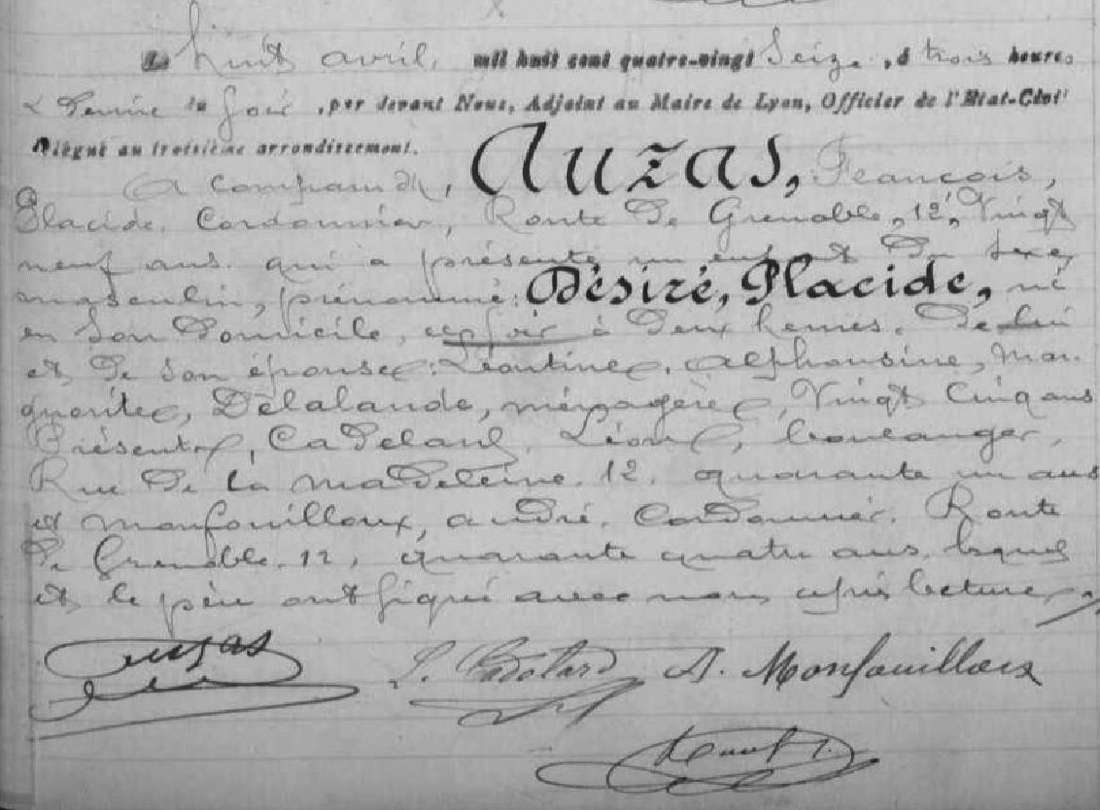 Le huit avril, mil huit cent quatre-vingt Seize, à trois heures
& demie du soir, par devant Nous, Adjoint au Maire de Lyon, Officier de l'Etat-Civil
Délégué au troisième arrondissement.
A comparu, AUZAS, François,
Placide, Cordonnier, Route de Grenoble, 12, Vingt
neuf ans. qui a présenté un enfant du sexe
masculin, prénommé: Désiré, Placide, né
en son domicile, ce soir à deux heures. De lui
et de son épouse: Léontine, Alphonsine, Mar-
guerite, Delalande, ménagère, Vingt Cinq ans
Présents, Cadelard, Léon, boulanger,
Rue de la Madeleine. 12. quarante un ans
et Monfouilloux, andré, Cordonnier. Route
de Grenoble. 12, quarante quatre ans. lesquels
et le père ont signé avec nous après lecture
Auzas L. Cadelard A. Monfouilloux